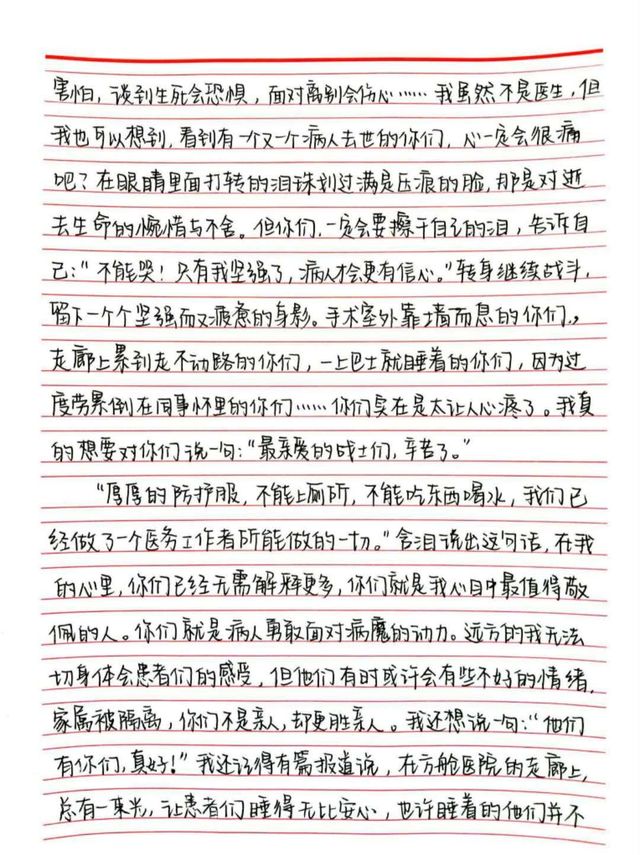 害怕，谈到生死会恐惧，面对离别会伤心……我虽然不是医生，但
我也可以想到，看到有一个又一个病人去世的你们，心一定会很痛
吧？在眼睛里面打转的泪珠划过满是压痕的脸，那是对逝
去生命的惋惜与不舍。但你们，一定会要擦干自己的泪，告诉自
己：“不能哭！只有我坚强了，病人才会更有信心。”转身继续战斗，
留下一个个坚强而又疲惫的身影。手术室外靠墙而息的你们，
走廊上累到走不动路的你们，一上巴士就睡着的你们，因为过
度劳累倒在同事怀里的你们……你们实在是太让人心疼了。我真
的想要对你们说一句：“最亲爱的战士们，辛苦了。”
“厚厚的防护服，不能上厕所，不能吃东西喝水，我们已
经做了一个医务工作者所能做的一切。”含泪说出这句话，在我
的心里，你们已经无需解释更多，你们就是我心目中最值得敬
佩的人。你们就是病人勇敢面对病魔的动力。远方的我无法
切身体会患者们的感受，但他们有时或许会有些不好的情绪，
家属被隔离，你们不是亲人，却更胜亲人。我还想说一句：“他们
有你们，真好！”我还记得有篇报道说，在方舱医院的走廊上，
总有一束光，让患者们睡得无比安心，也许睡着的他们并不